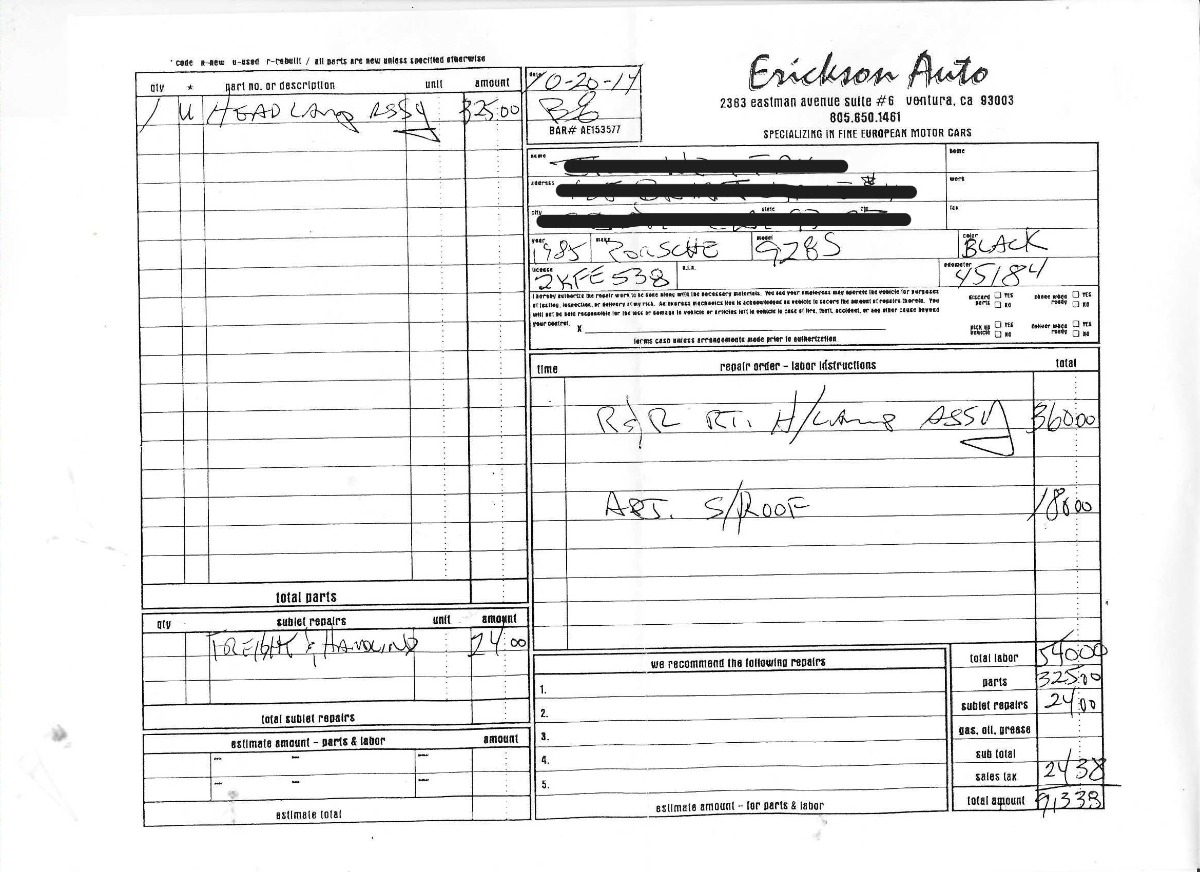 * code n-new u-used r-rebuilt / all parts are new unless specified otherwise
qty * part no. or description unit amount
1 U HEADLAMP ASSY 325.00
total parts
qty sublet repairs unit amount
FREIGHT & HANDLING 24 00
total sublet repairs
estimate amount - parts & labor amount
estimate total
date 10-20-14
BAR# AE153577
Erickson Auto
2363 eastman avenue suite #6 ventura, ca 93003
805.650.1461
SPECIALIZING IN FINE EUROPEAN MOTOR CARS
name home
address work
city state zip fax
year 1985 make PORSCHE model 928S color BLACK
license 2KFE538 v.i.n. odometer 45184
I hereby authorize the repair work to be done along with the necessary materials. You and your employees may operate the vehicle for purposes
of testing, inspection, or delivery at my risk. An express mechanics lien is acknowledged on vehicle to secure the amount of repairs thereto. You
will not be held responsible for the loss or damage to vehicle or articles left in vehicle in case of fire, theft, accident, or any other cause beyond
your control. X
terms cash unless arrangements made prior to authorization
discard parts YES NO phone when ready YES NO
pick up vehicle YES NO deliver when ready YES NO
time repair order - labor instructions total
R&R RT. H/LAMP ASSY 360 00
ADJ. S/ROOF 180 00
we recommend the following repairs
1.
2.
3.
4.
5.
estimate amount - for parts & labor
total labor 540 00
parts 325 00
sublet repairs 24 00
gas, oil, grease
sub total
sales tax 24 38
total amount 913 38